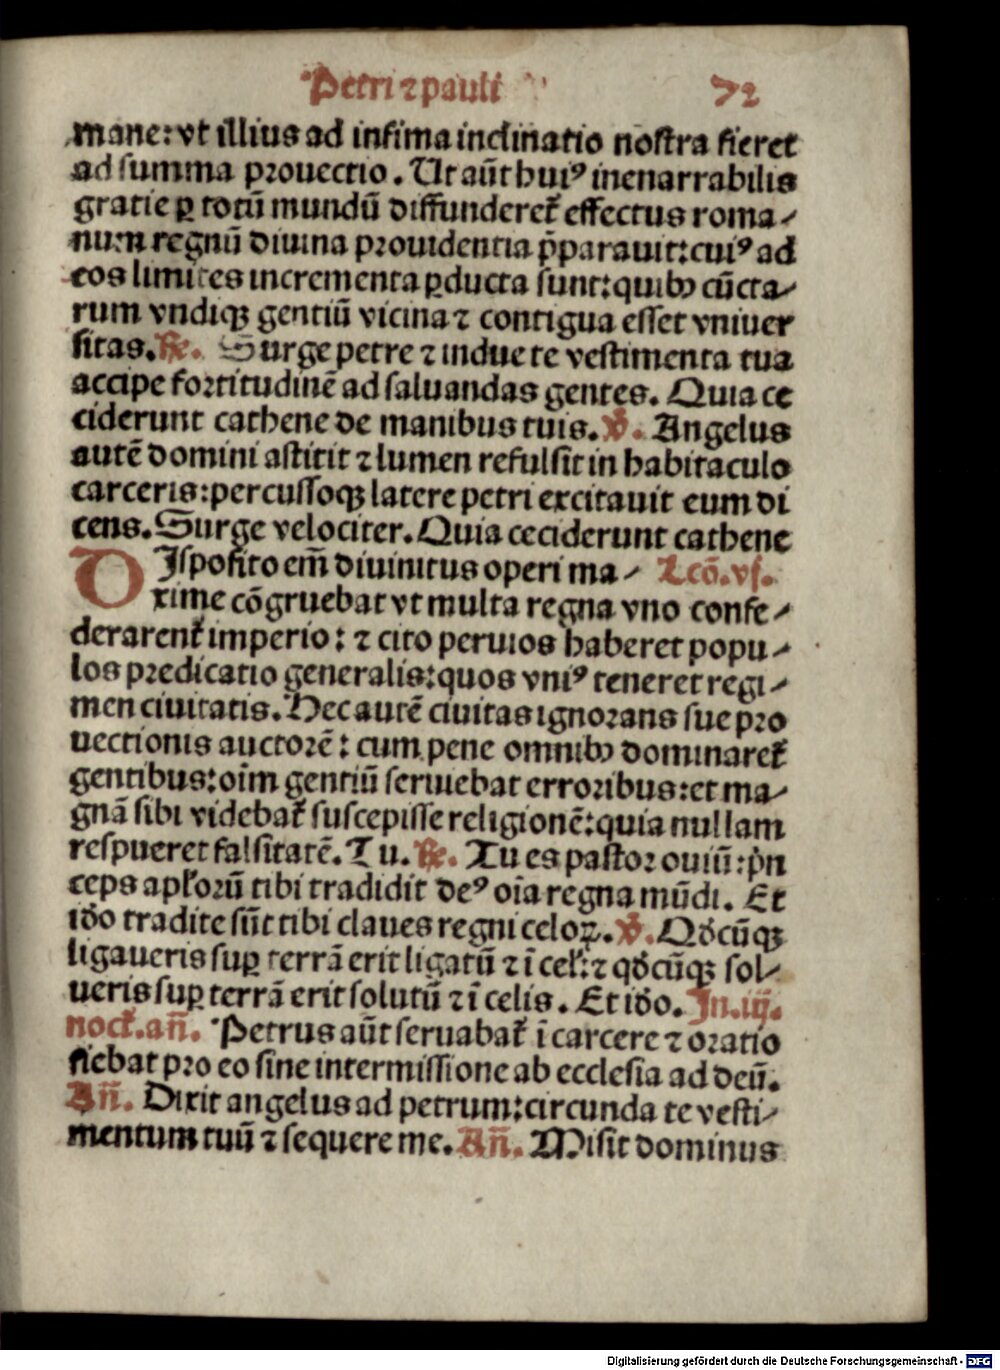 Petri ⁊ pauli 72
mane: vt illius ad infima inclinatio nostra fieret
ad summa prouectio. Ut aūt huiꝰ inenarrabilis
gratie ꝑ totū mundū diffunderet᷑ effectus roma-
num regnū diuina prouidentia p̄parauit: cuiꝰ ad
eos limites incrementa ꝑducta sunt: quibꝫ cūcta-
rum vndiqꝫ gentiū vicina ⁊ contigua esset vniuer
sitas. ℟. Surge petre ⁊ indue te vestimenta tua
accipe fortitudinē ad saluandas gentes. Quia ce
ciderunt cathene de manibus tuis. ℣. Angelus
autē domini astitit ⁊ lumen refulsit in habitaculo
carceris: percussoqꝫ latere petri excitauit eum di
cens. Surge velociter. Quia ceciderunt cathene
DIsposito em̄ diuinitus operi ma- Lcō. vj.
xime cōgruebat vt multa regna vno confe-
derarent᷑ imperio: ⁊ cito peruios haberet popu-
los predicatio generalis: quos vniꝰ teneret regi-
men ciuitatis. Hec autē ciuitas ignorans sue pro
uectionis auctorē: cum pene omnibꝫ dominaret᷑
gentibus: oīm gentiū seruiebat erroribus: et ma-
gnā sibi videbat᷑ suscepisse religionē: quia nullam
respueret falsitatē. Tu. ℟. Tu es pastor ouiū: p̄n
ceps apłorū tibi tradidit deꝰ oīa regna mūdi. Et
iđo tradite sūt tibi claues regni celoꝝ. ℣. Qđcūqꝫ
ligaueris suꝑ terrā erit ligatū ⁊ ī cel᷑: ⁊ qđcūqꝫ sol-
ueris suꝑ terrā erit solutū ⁊ ī celis. Et iđo. In. iij.
noct᷑. an̄. Petrus aūt seruabat᷑ ī carcere ⁊ oratio
fiebat pro eo sine intermissione ab ecclesia ad deū.
An̄. Dixit angelus ad petrum: circunda te vesti-
mentum tuū ⁊ sequere me. An̄. Misit dominus
Digitalisierung gefördert durch die Deutsche Forschungsgemeinschaft - DFG